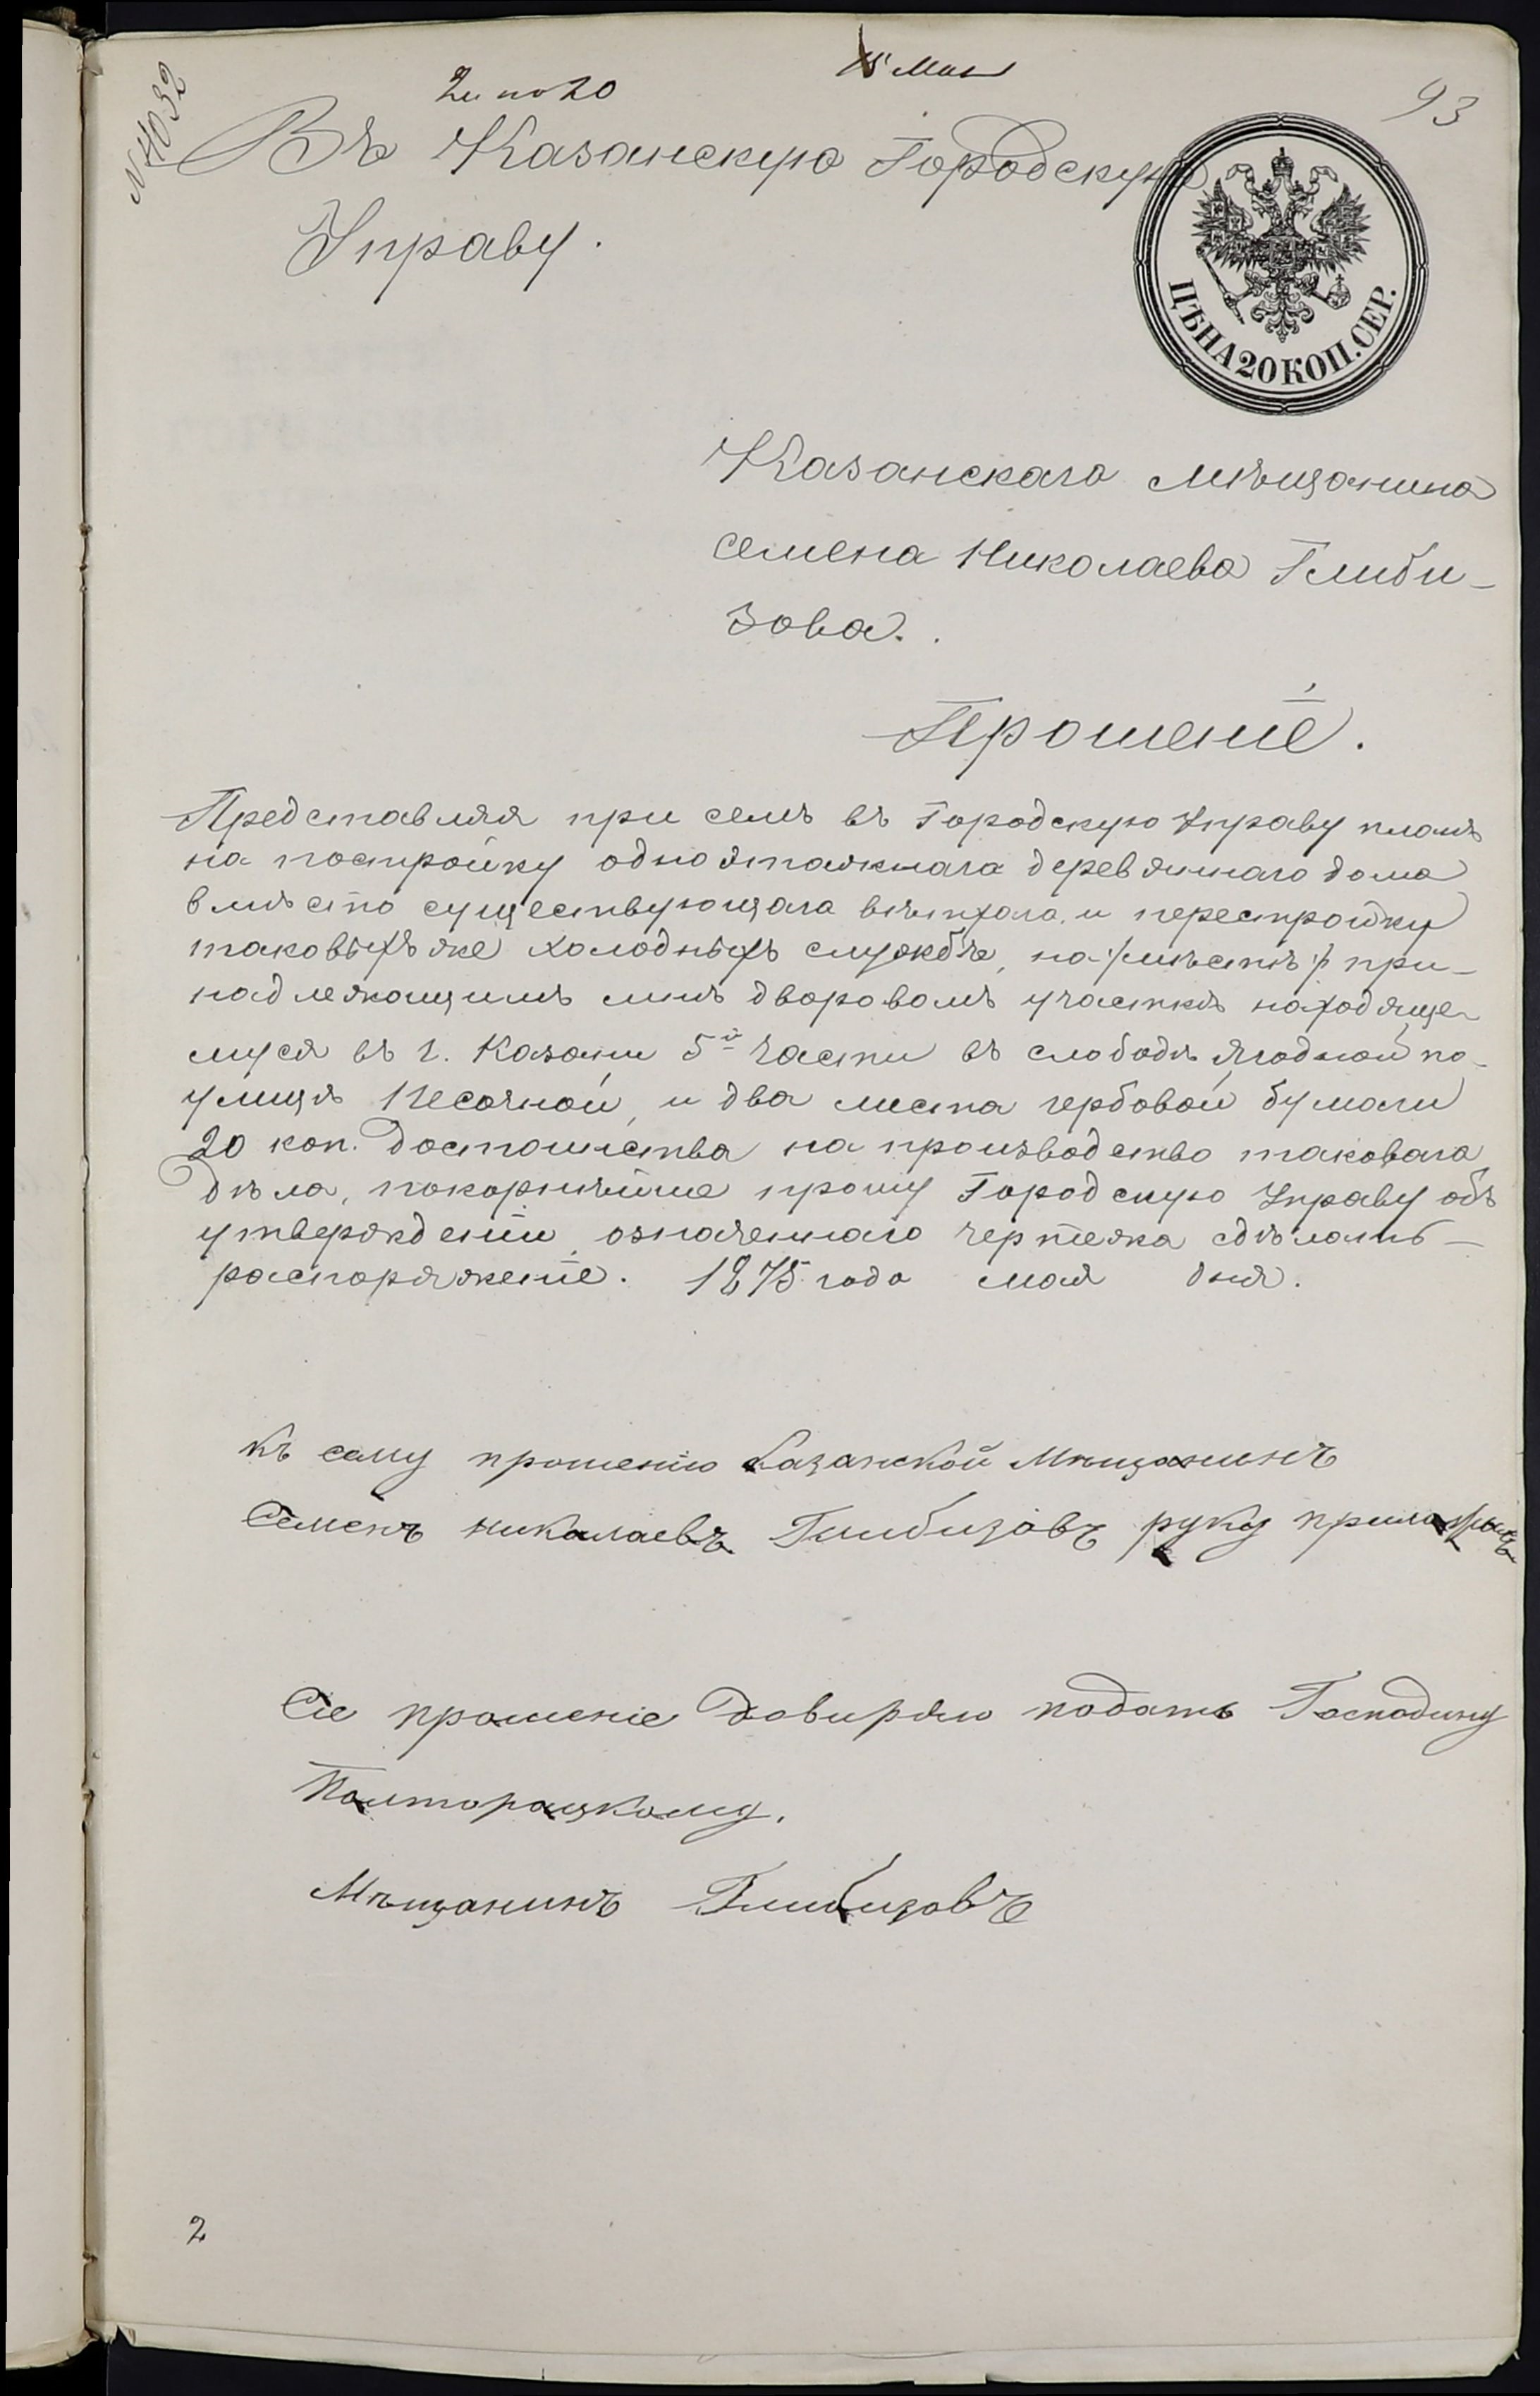 № 4032
2 л. по 20
15 Мая
93
Въ Казанскую Городскую
Управу.
ЦѢНА 20 КОП. СЕР.
Казанскаго мѣщанина
Семена Николаева Глиби-
зова.
Прошеніе.
Представляя при семъ въ Городскую Управу планъ
на постройку одноэтажнаго деревяннаго дома
вмѣсто существующаго вѣтхаго, и перестройку
таковыхъ же холодныхъ службъ, на /мѣстѣ/ при-
надлежащимъ мнѣ дворовомъ участкѣ находяще-
муся въ г. Казани 5й части въ слободѣ Ягодной по
улицѣ Песочной, и два листа гербовой бумаги
20 коп. достоинства на производство таковаго
дѣла, покорнѣйше прошу Городскую Управу объ
утвержденіи означеннаго чертежа сдѣлать
распоряженіе. 1875 года мая дня.
Къ сему прошенію Казанской Мѣщанинъ
Семенъ Николаевъ Глибизовъ руку приложилъ
Сіе прошеніе довиряю подать Господину
Полторацкому.
Мѣщанинъ Глибизовъ
2